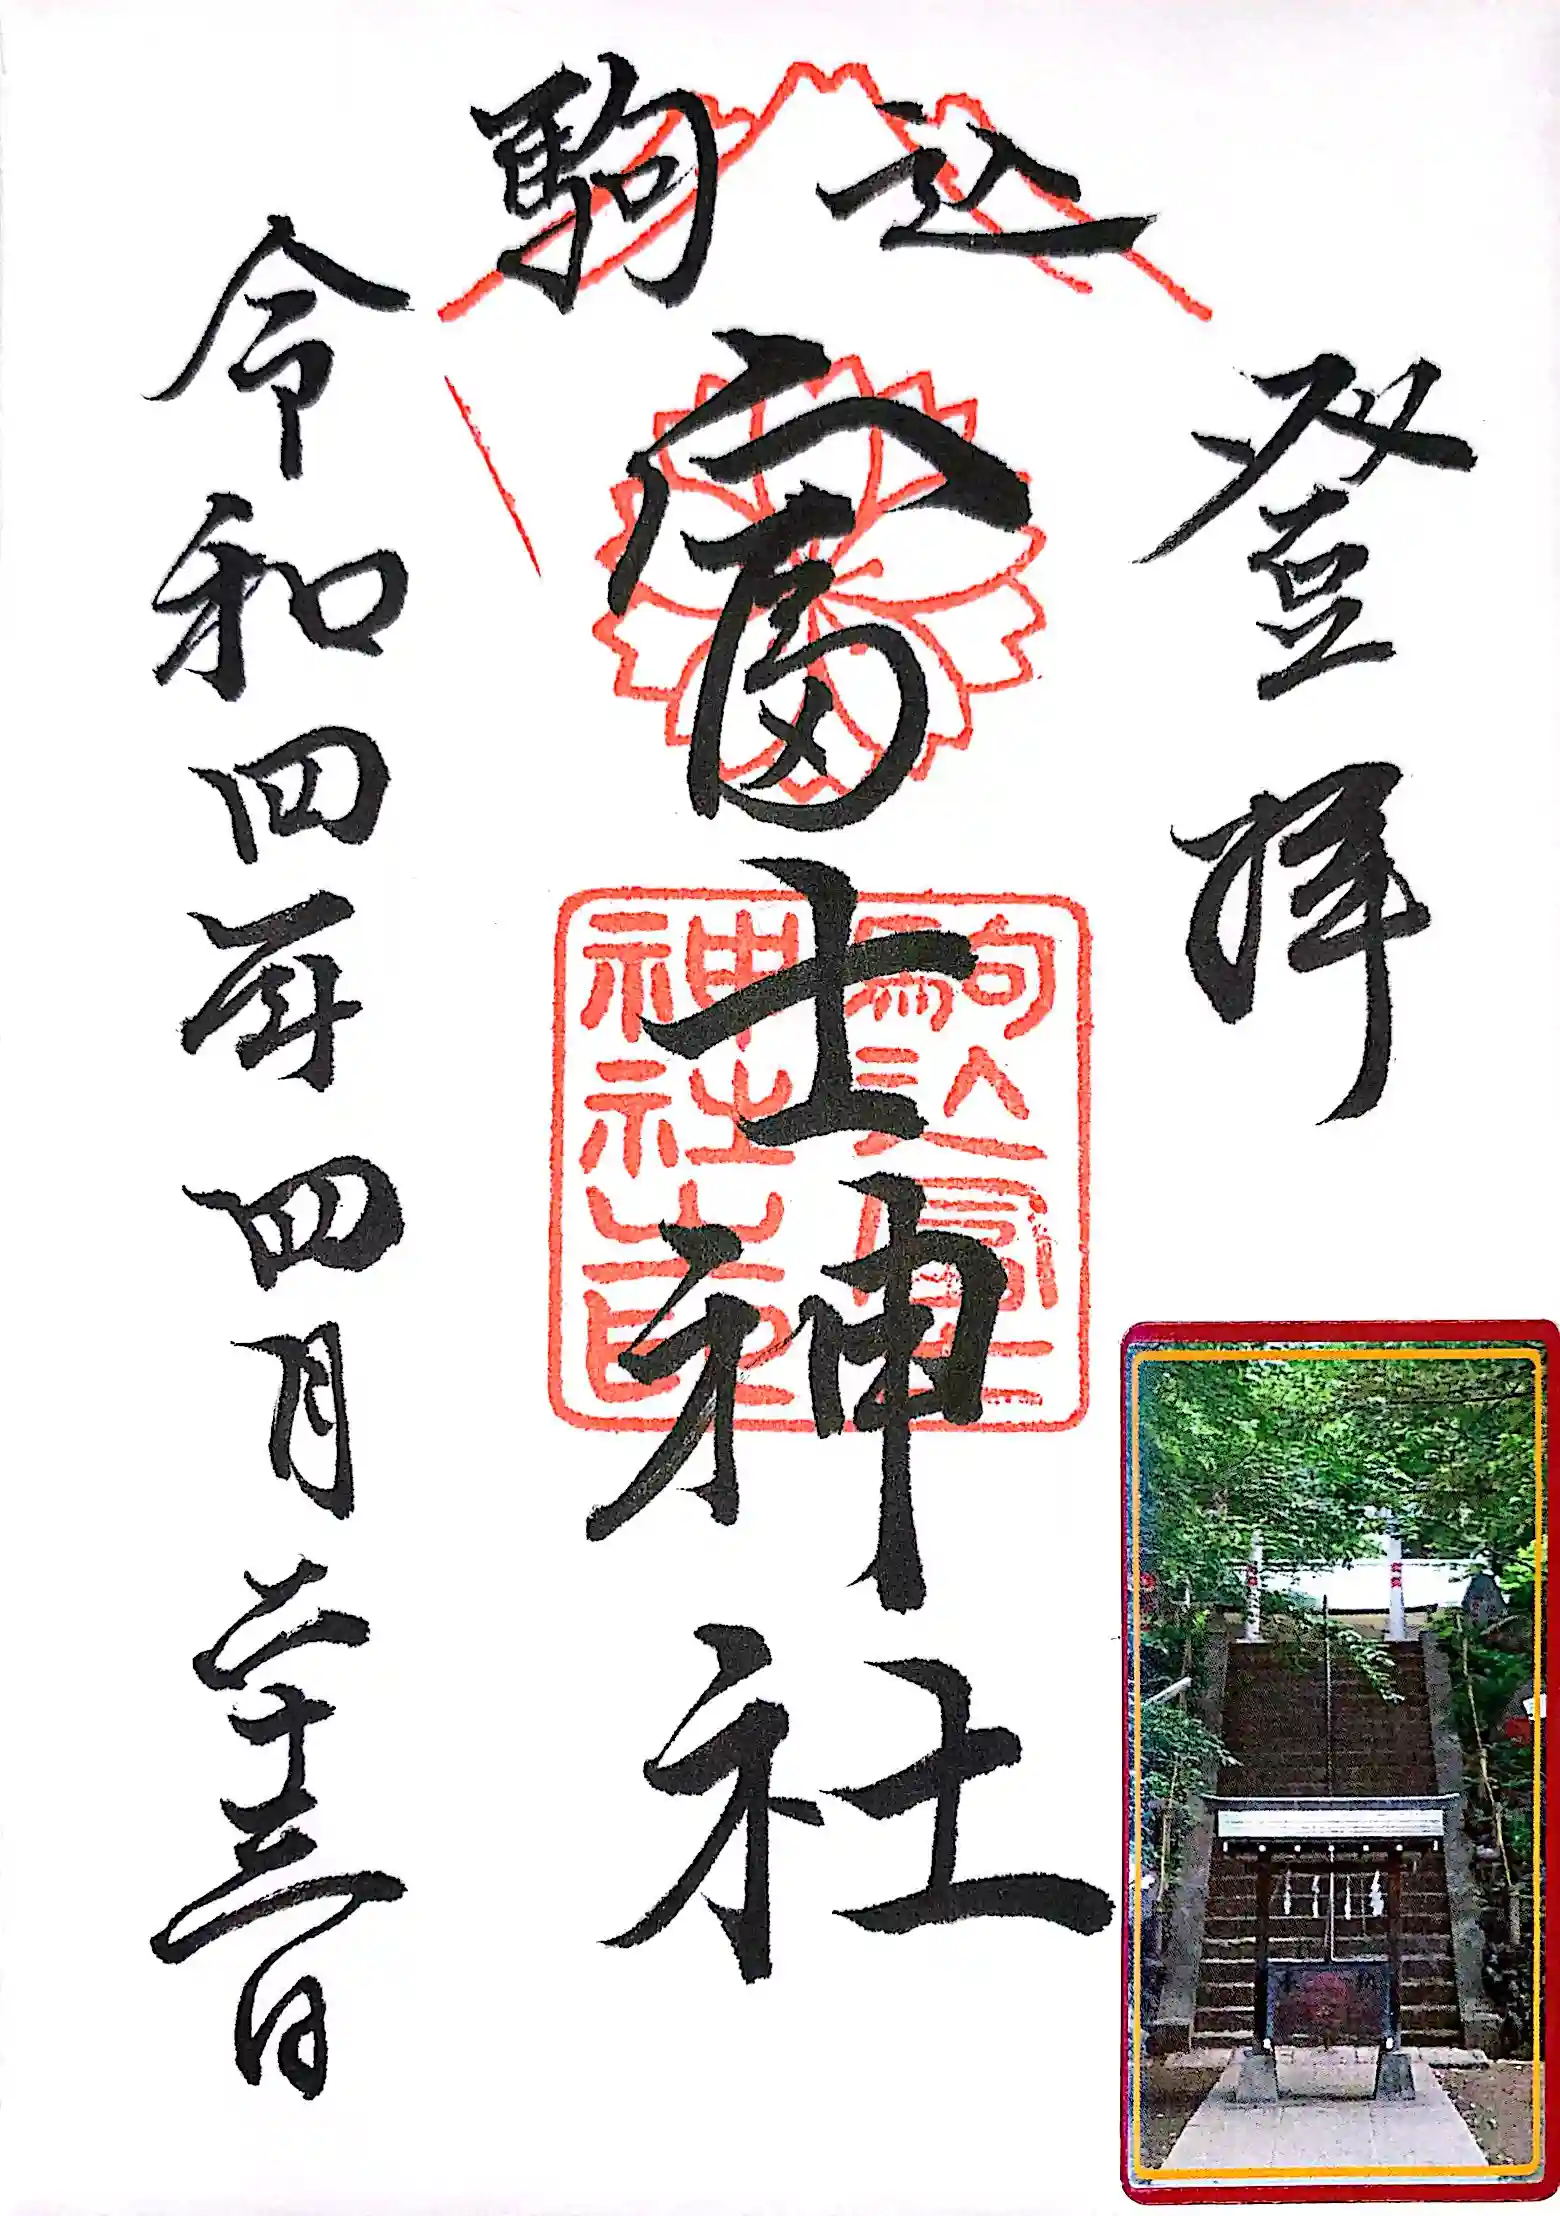 登拝
駒込
富士神社
駒込富士
神社之印
令和四年四月二十三日